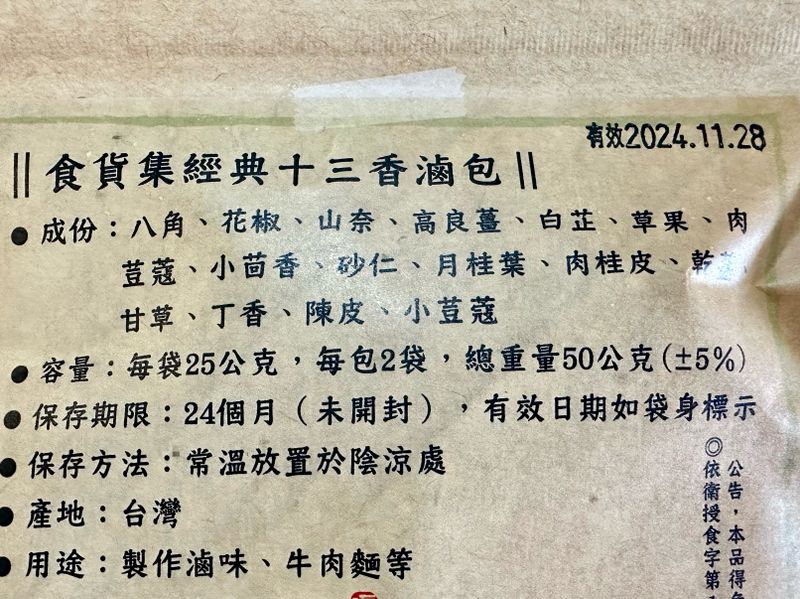 有效2024.11.28
||食貨集經典十三香滷包||
●成份：八角、花椒、山奈、高良薑、白芷、草果、肉
荳蔻、小茴香、砂仁、月桂葉、肉桂皮、乾
甘草、丁香、陳皮、小荳蔻
●容量：每袋25公克，每包2袋，總重量50公克(±5%)
●保存期限：24個月（未開封），有效日期如袋身標示
●保存方法：常溫放置於陰涼處
●產地：台灣
●用途：製作滷味、牛肉麵等
公告，本品得
◎依衛授食字第